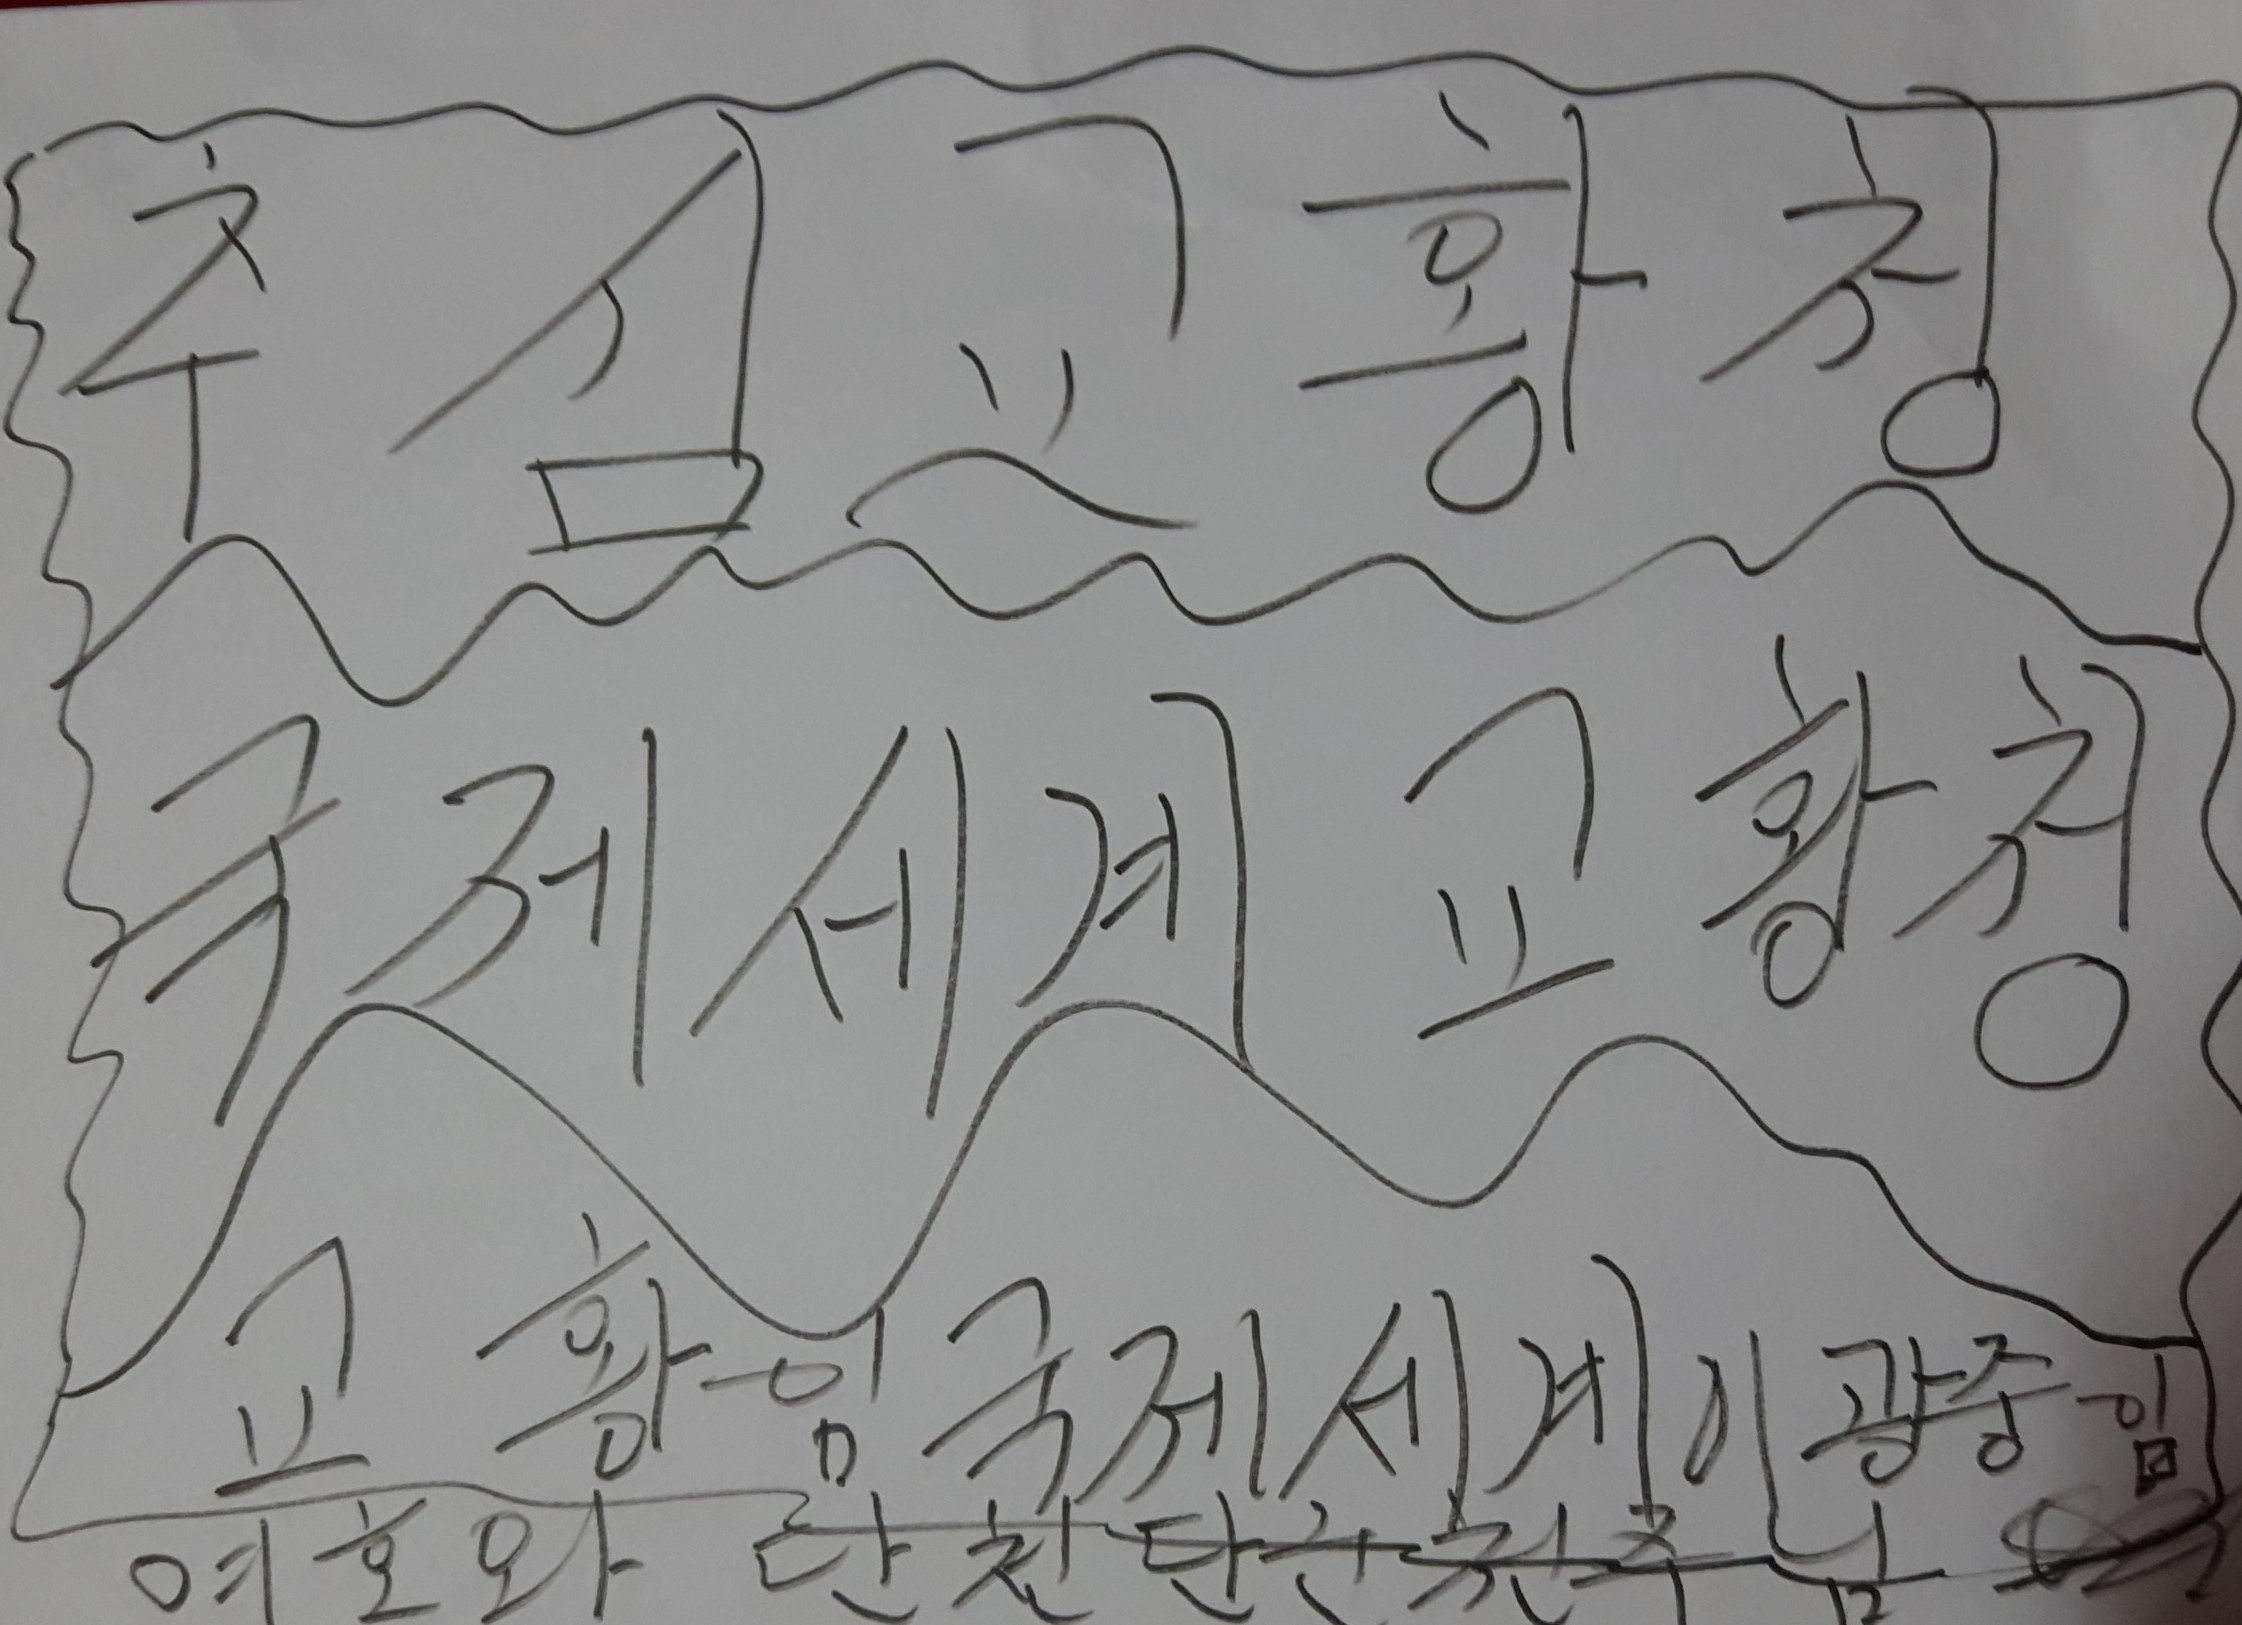 추심교황청
국제세계교황청
교황임국제세계이광중임
여호와 단천단군천주님